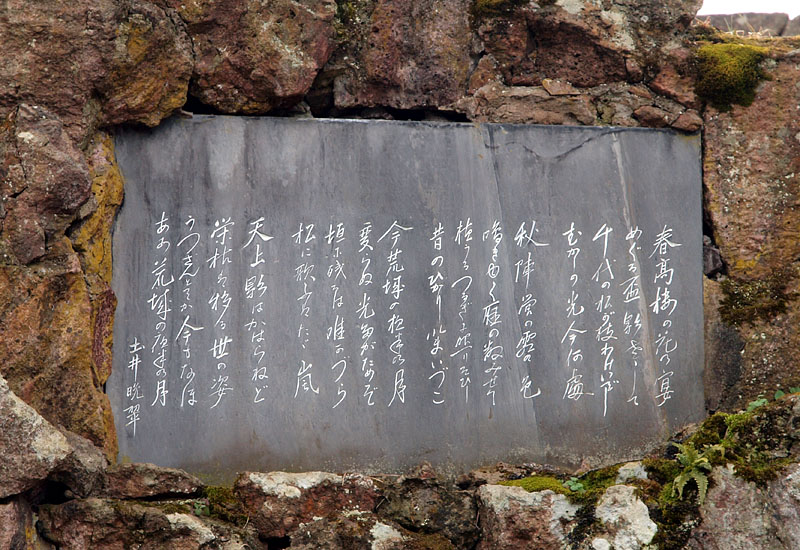 春高楼の花の宴
めぐる盃影さして
千代の松が枝わけいでし
むかしの光今何處
秋陣営の霜の色
鳴き行く雁の数みせて
植うるつるぎに照りそひし
昔のひかり今いづこ
今荒城の夜半の月
変らぬ光たがためぞ
垣に残るは唯かづら
松に歌ふはたゞ嵐
天上影はかはらねど
栄枯は移る世の姿
うつさんとてか今もなほ
あゝ荒城の夜半の月
土井晩翠